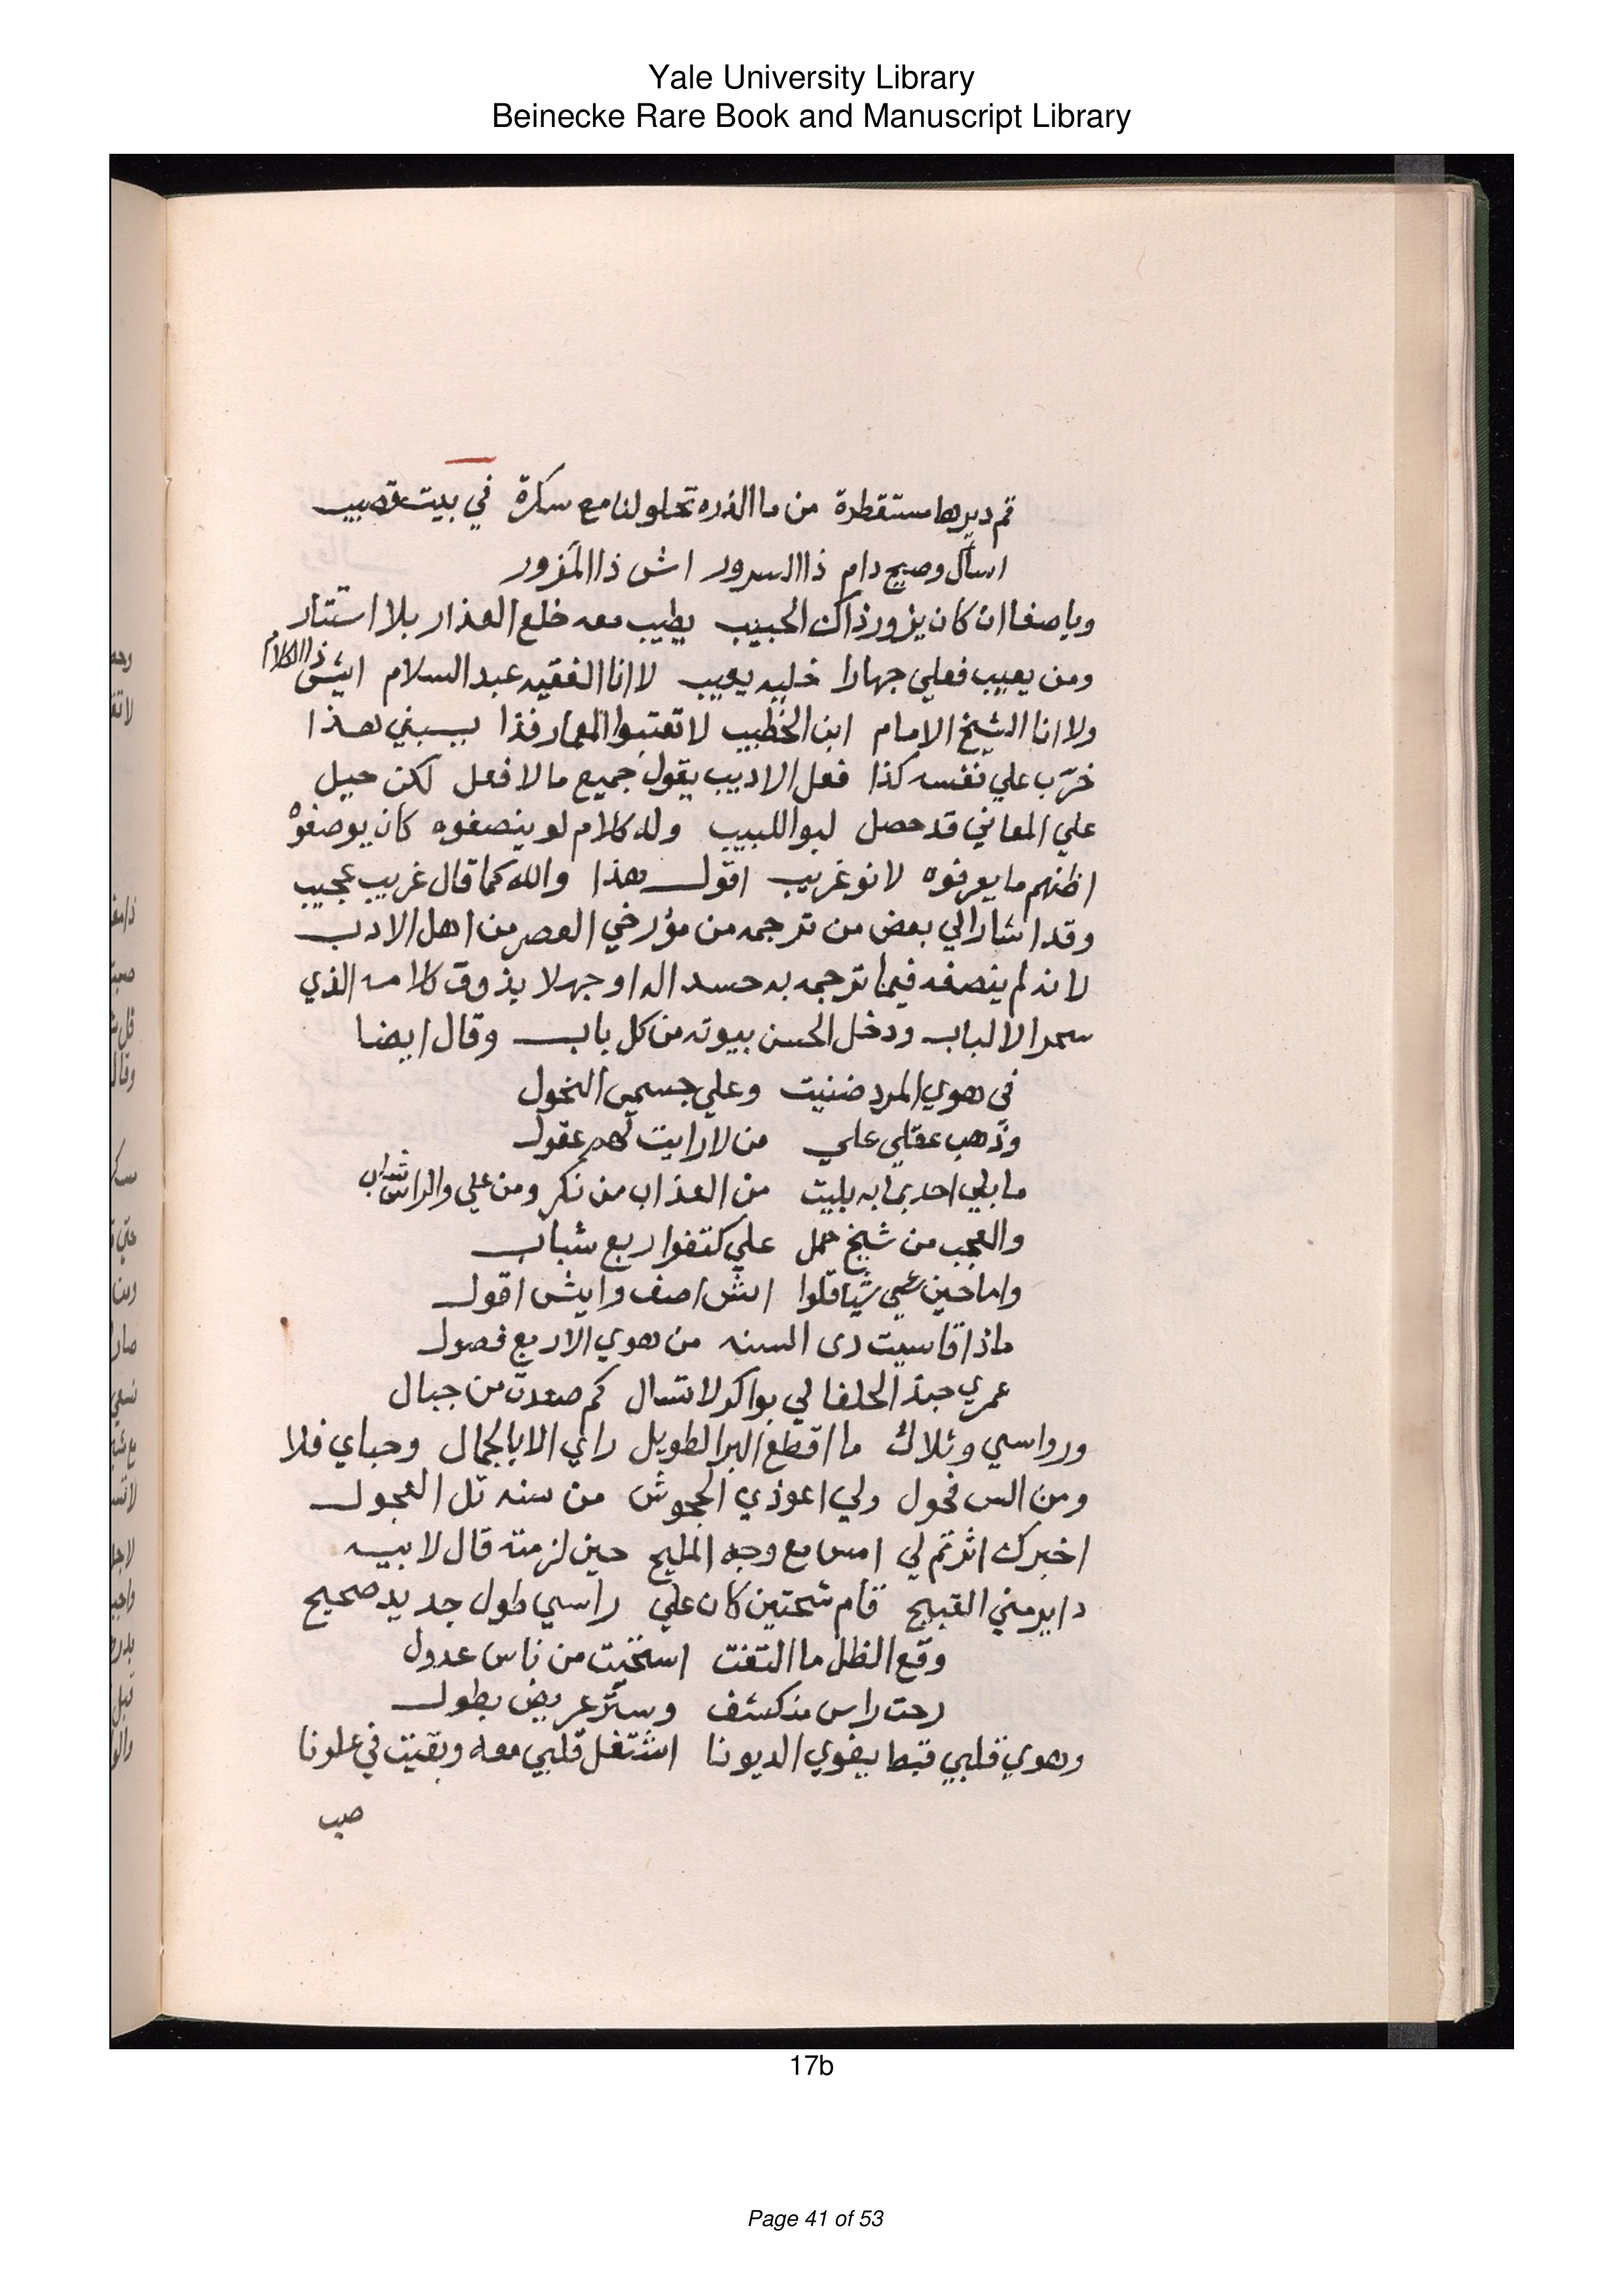 Yale University Library
Beinecke Rare Book and Manuscript Library
قم ديرها مستقطرة من ما الذره تحلو لنا مع سكرة في بيت قصيب
اسأل وصبح دام ذا السرور اش ذا المزور
وياصفا ان كان يزور ذاك الحبيب يطيب معه خلع العذار بلا استتار
ومن يعيب فعلي جهارا خليه يعيب لا انا الفقيه عبد السلام ايش ذا الكلام
ولا انا الشيخ الامام ابن الخطيب لا تعتبوا المعمار فذا بيسبني هذا
خرّب علي نفسه كذا فعل الاديب يقول جميع ما لا فعل لكن حيل
علي المعاني قد حصل لبو اللبيب وله كلام لو ينصفوه كان يوصفوه
اظنهم ما يعرفوه لانو غريب اقول هذا والله كما قال غريب عجيب
وقد اشار الي بعض من ترجمه من مؤرخي العصر من اهل الادب
لانه لم ينصفه فيما ترجمه به حسدا له او جهلا بذوق كلامه الذي
سحر الالباب ودخل الحسن بيوته من كل باب وقال ايضا
في هوي المرد ضنيت وعلي جسمي النحول
وذهب عقلي علي من لا رايت لهم عقول
ما بلي احد بما به بليت من العذاب من نكر ومن علي والراس شاب
والعجب من شيخ حمل علي كتفوا ربع شباب
واما حين عيي شياقلوا ايش اصف وايش اقول
ماذا قاسيت دي السنه من هوي الاربع فصول
عمري حبذ الحلفا لي بواكر لا تسال كم صعدت من جبال
ورواسي وتلاك ما اقطع البر الطويل راي الا بالجمال وحباي فلا
ومن الس فحول ولي اعوذي الجحوش من سنه تل العجول
اخبرك اش تم لي امس مع وجه المليح حين لزمته قال لابيه
دا يرمني القبيح قام شحتين كان علي راسي طول جديد صحيح
وقع الظل ما التفت استخيت من ناس عدول
رحت راس منكشف وستر عريض بطول
وهوي قلبي قبط بيغوي الديونا اشتغل قلبي معه وبقيت في علونا
صب
17b
Page 41 of 53